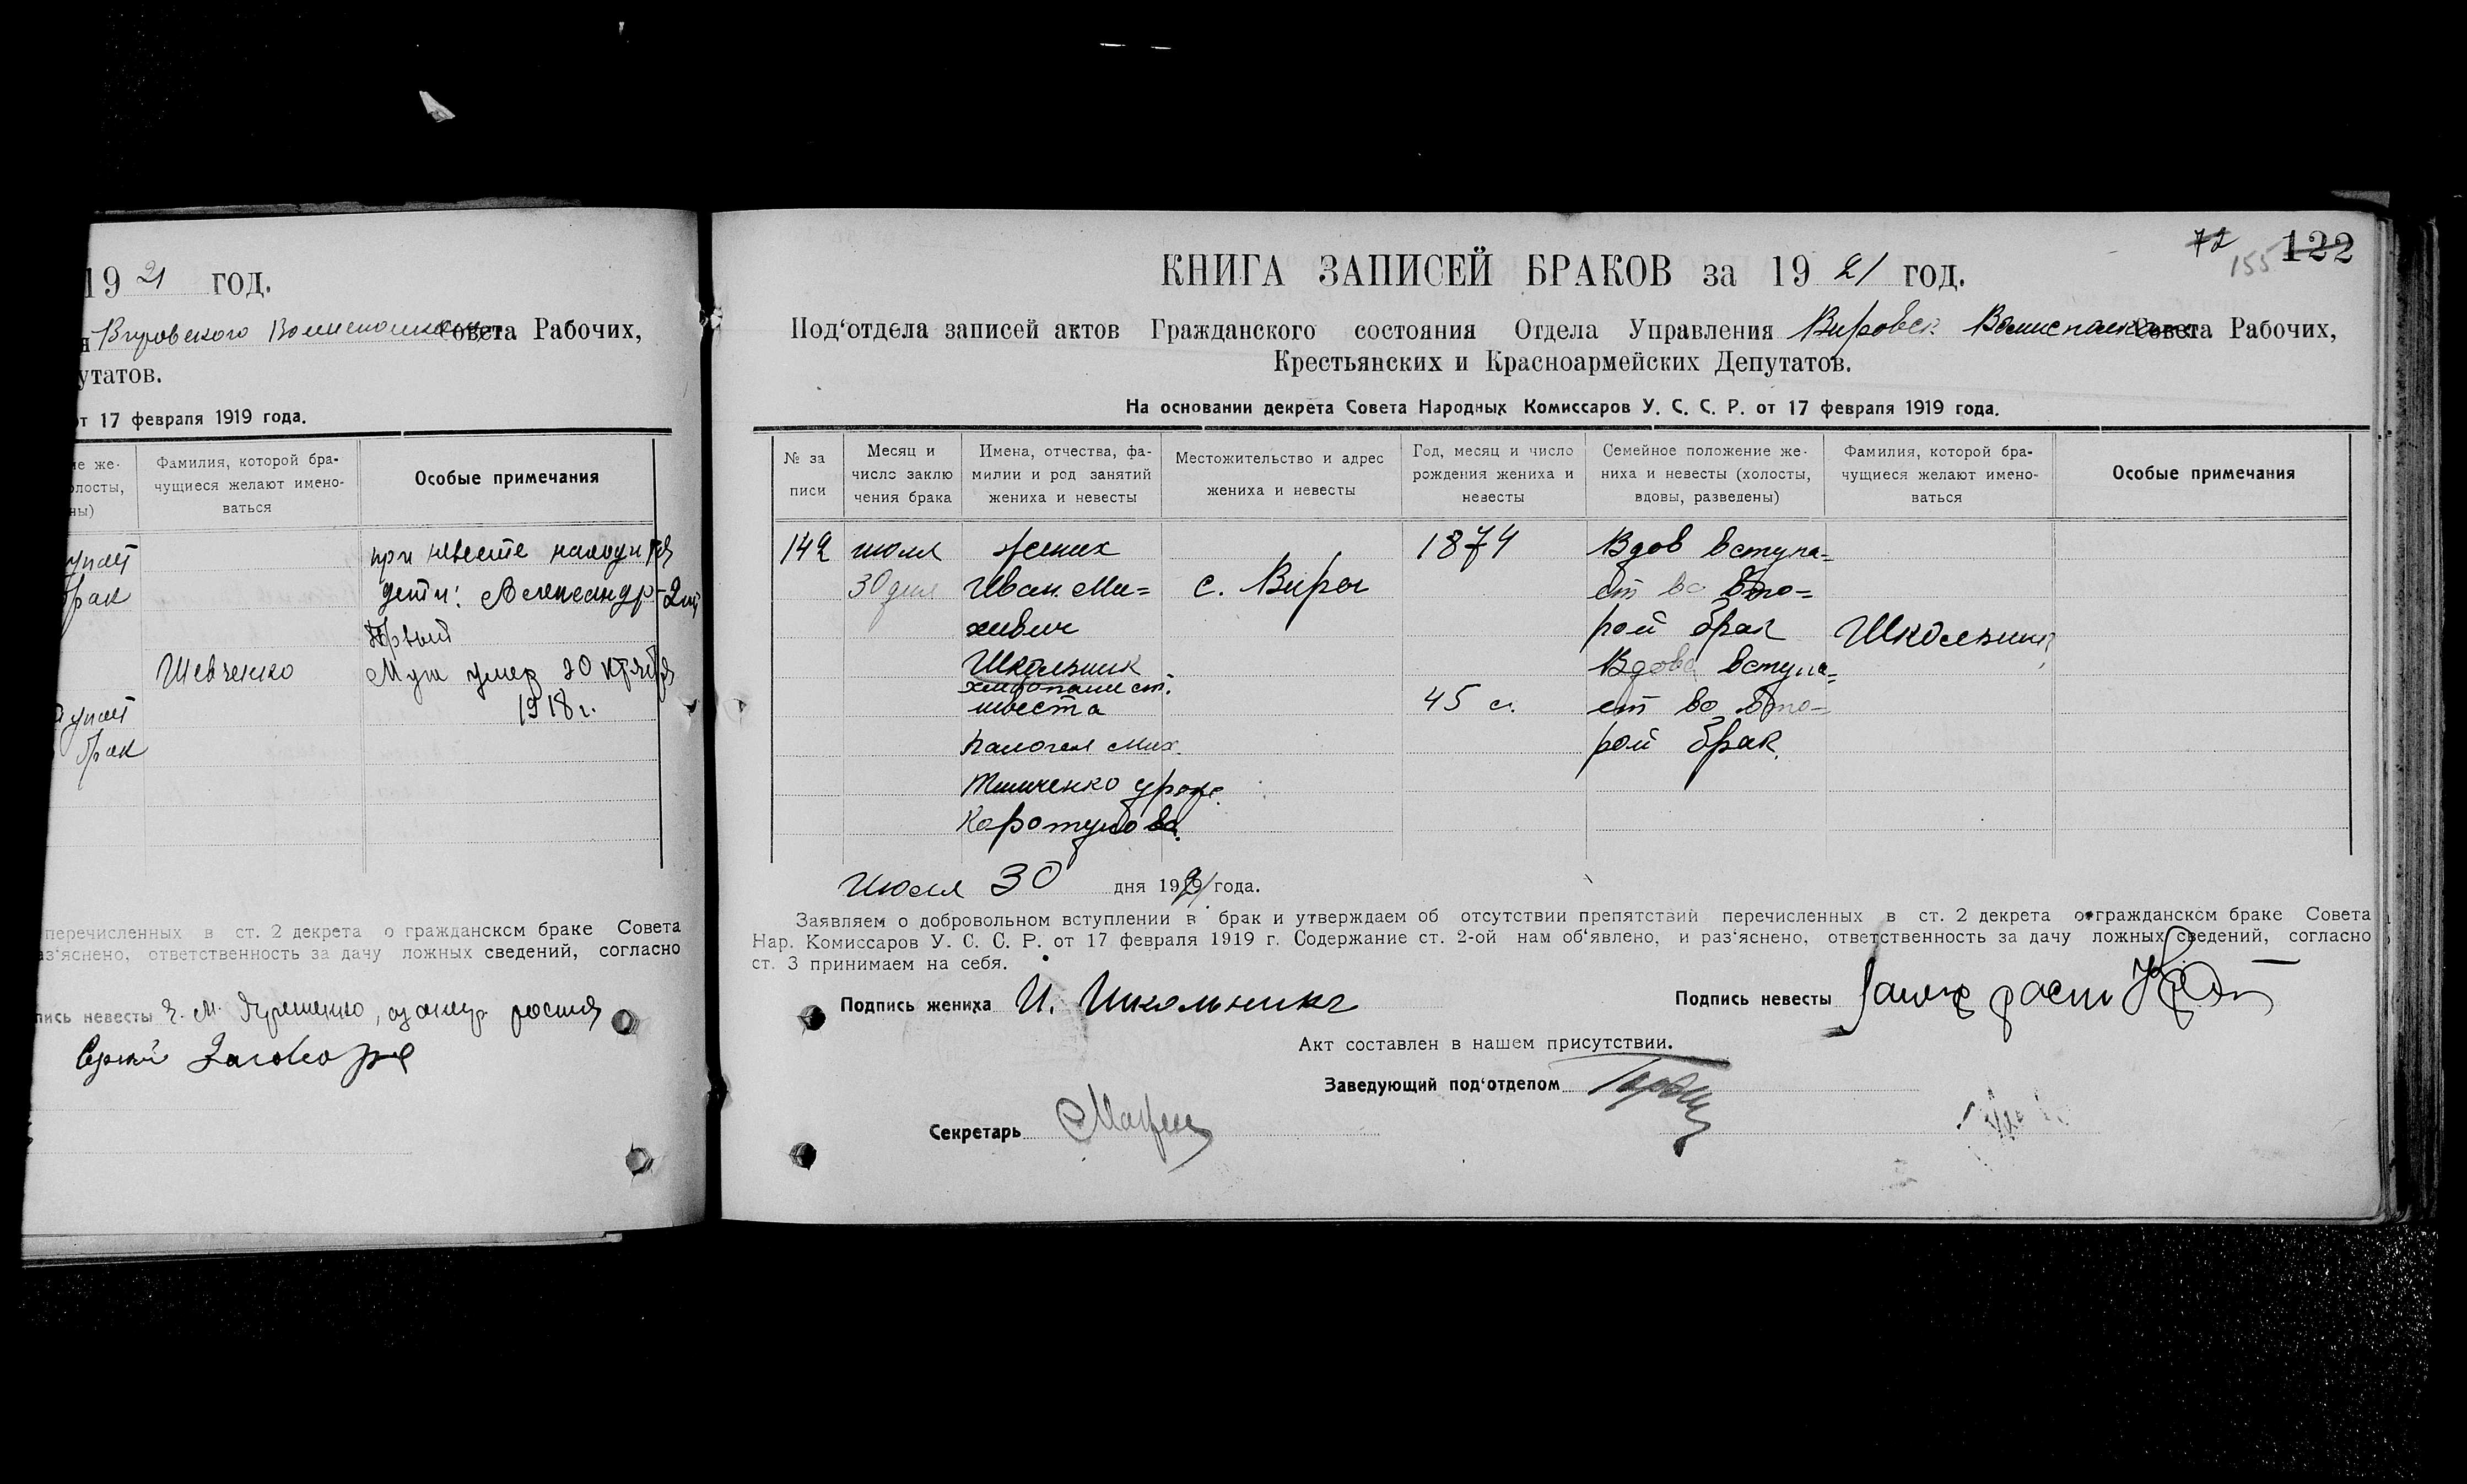 19 21 год.
Вировского Волисполкома Совета Рабочих,
утатов.
от 17 февраля 1919 года.
ие же-
олосты,
ны)
Фамилия, которой бра-
чущиеся желают имено-
ваться
Особые примечания
упает
брак
при невесте находится
дети: Александр - 2
Шевченко
Муж умер 20 октября
1918 г.
упает
брак
перечисленных в ст. 2 декрета о гражданском браке Совета
аз'яснено, ответственность за дачу ложных сведений, согласно
пись невесты
Сергей
72 155 122
КНИГА ЗАПИСЕЙ БРАКОВ за 19 21 год.
Под'отдела записей актов Гражданского состояния Отдела Управления Вировск Волисполкома Совета Рабочих,
Крестьянских и Красноармейских Депутатов.
На основании декрета Совета Народных Комиссаров У. С. С. Р. от 17 февраля 1919 года.
№ за
писи
Месяц и
число заклю
чения брака
Имена, отчества, фа-
милии и род занятий
жениха и невесты
Местожительство и адрес
жениха и невесты
Год, месяц и число
рождения жениха и
невесты
Семейное положение же-
ниха и невесты (холосты,
вдовы, разведены)
Фамилия, которой бра-
чущиеся желают имено-
ваться
Особые примечания
142
июля
30 дня
жених
Иван Ми-
хивич
Школьник
хлебопашест.
невеста
Пелогея Мих.
Тимченко урож.
Коротунова.
с. Виры
1874
45 л.
Вдов вступа-
ет во вто-
рой брак
Вдова вступа-
ет во вто-
рой брак.
Школьник
Июля 30 дня 1921 года.
Заявляем о добровольном вступлении в брак и утверждаем об отсутствии препятствий перечисленных в ст. 2 декрета о гражданском браке Совета
Нар. Комиссаров У. С. С. Р. от 17 февраля 1919 г. Содержание ст. 2-ой нам об'явлено, и раз'яснено, ответственность за дачу ложных сведений, согласно
ст. 3 принимаем на себя.
Подпись жениха И. Школьника
Подпись невесты
Акт составлен в нашем присутствии.
Заведующий под'отделом
Секретарь